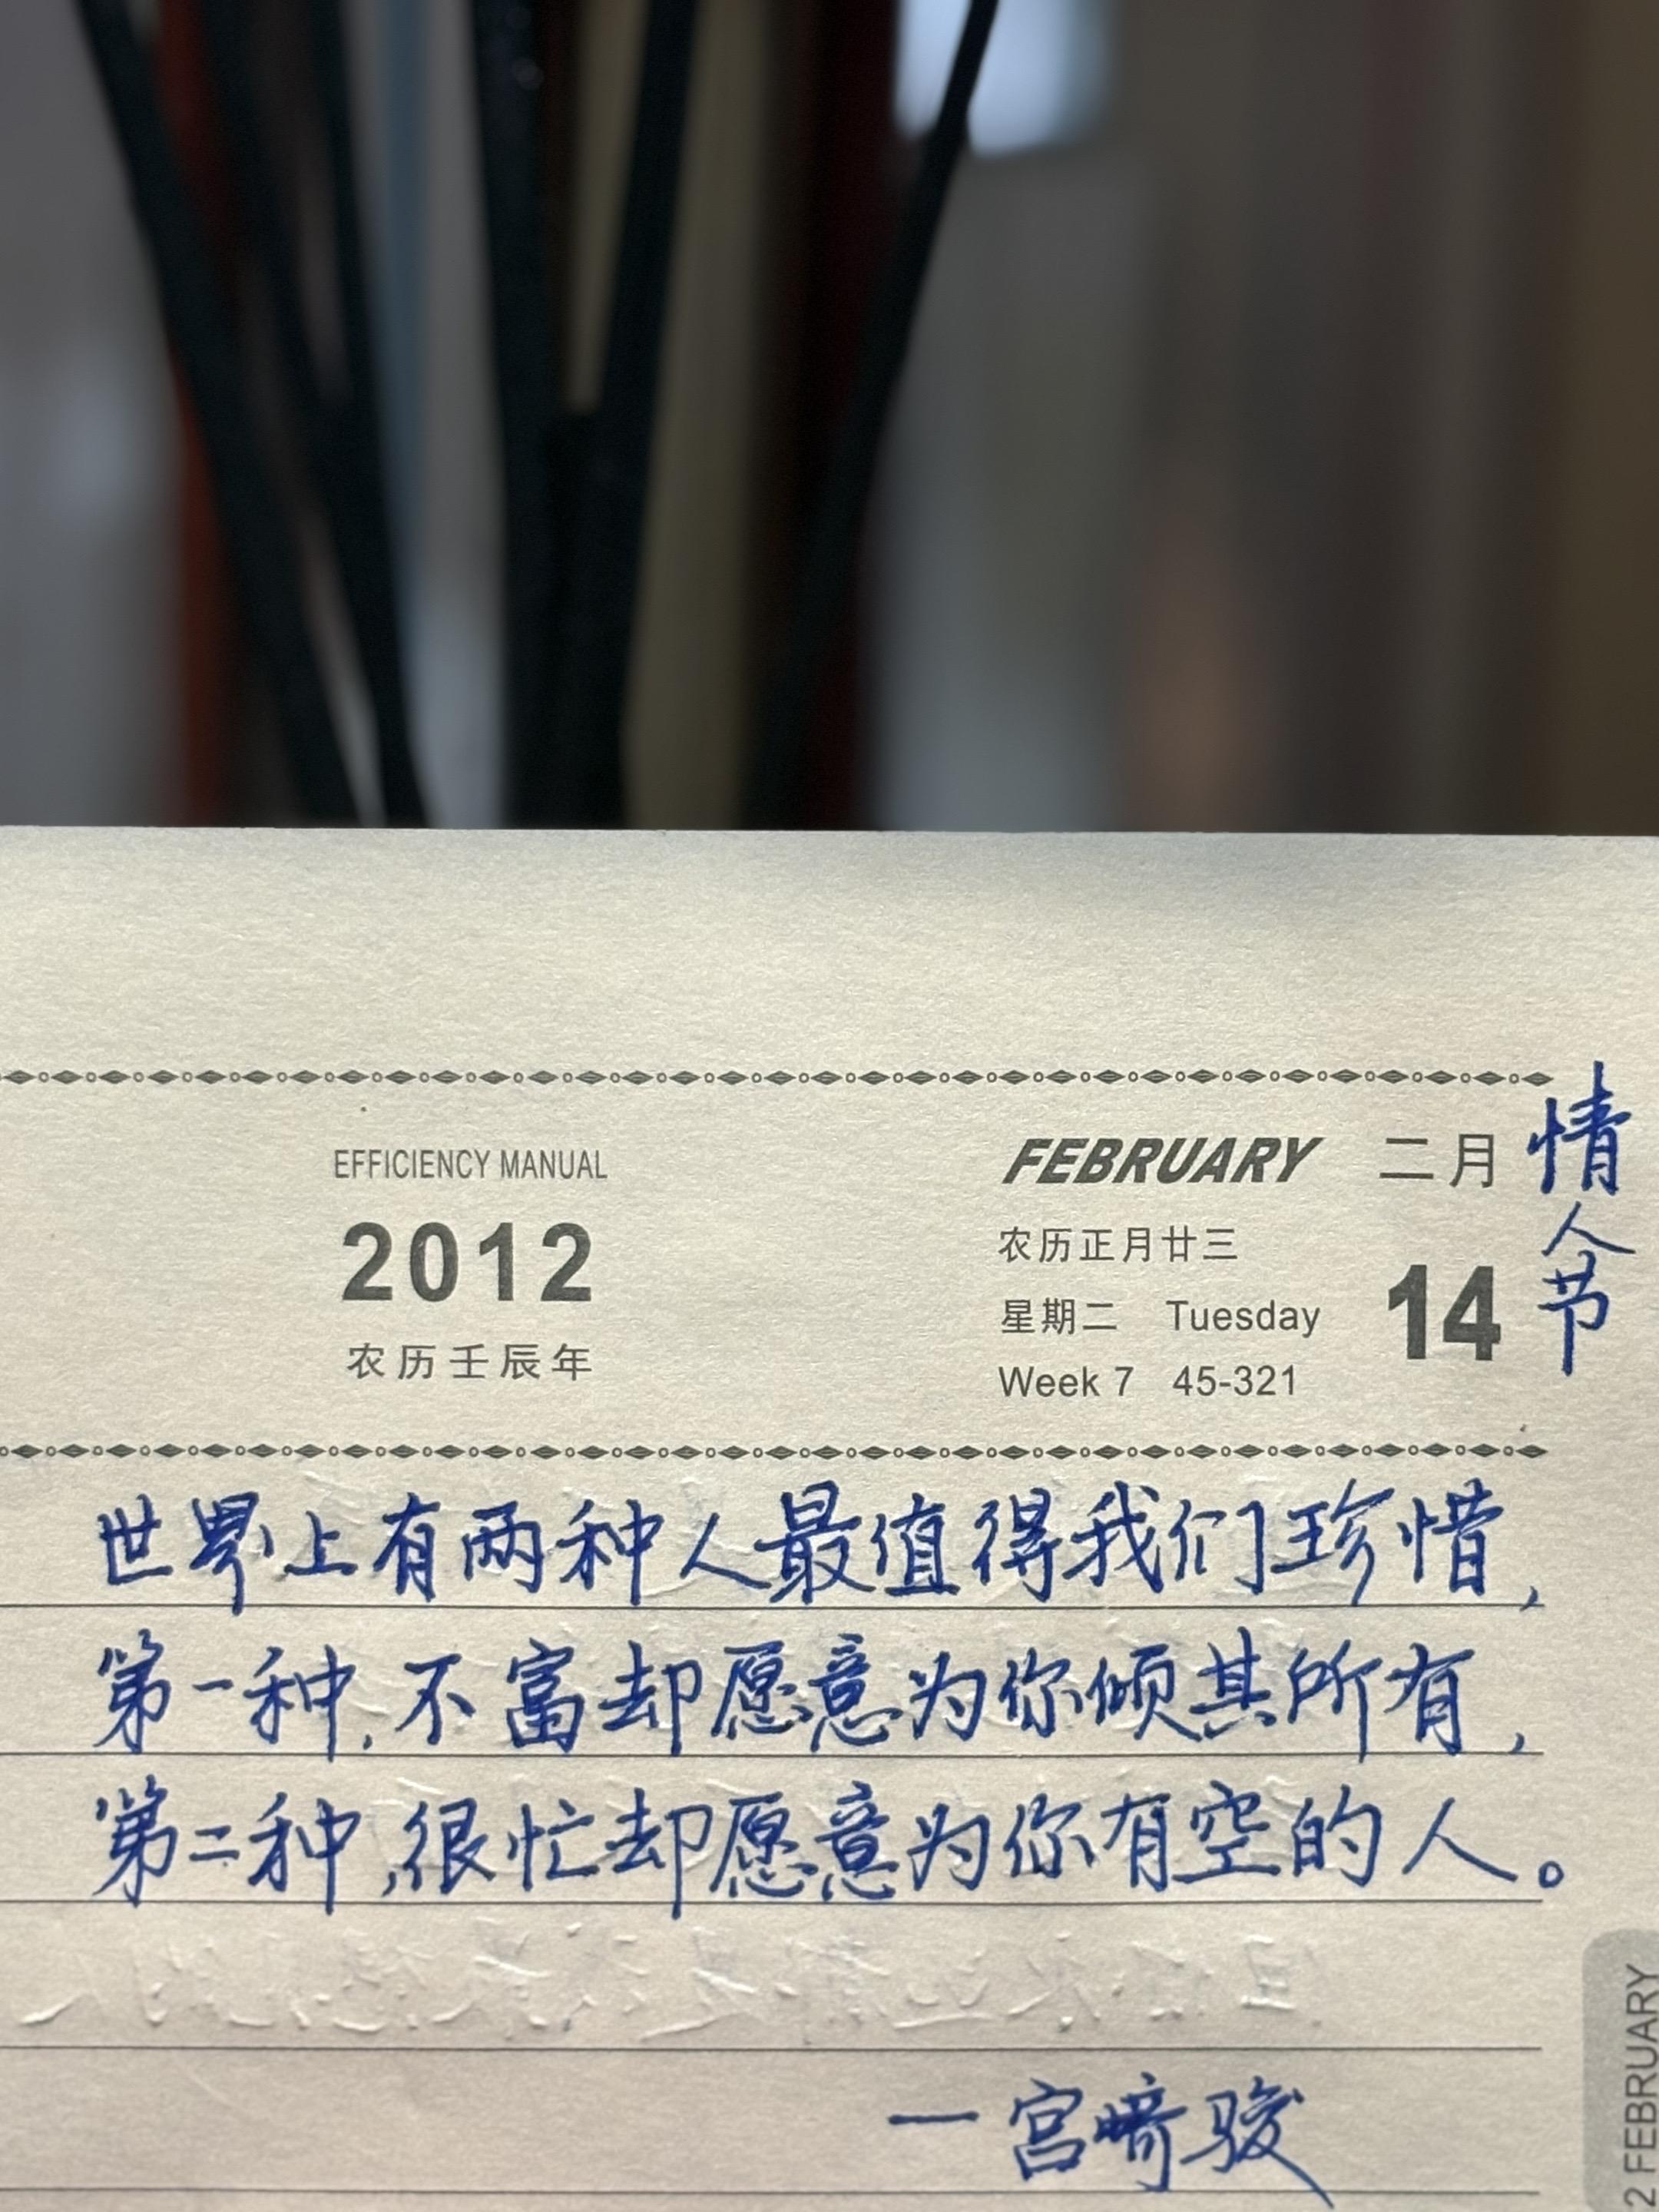 EFFICIENCY MANUAL
2012
农历壬辰年
FEBRUARY 二月
农历正月廿三
星期二 Tuesday
Week 7 45-321
14
情人节
世界上有两种人最值得我们珍惜,
第一种,不富却愿意为你倾其所有,
第二种,很忙却愿意为你有空的人。
一宫崎骏
2 FEBRUARY